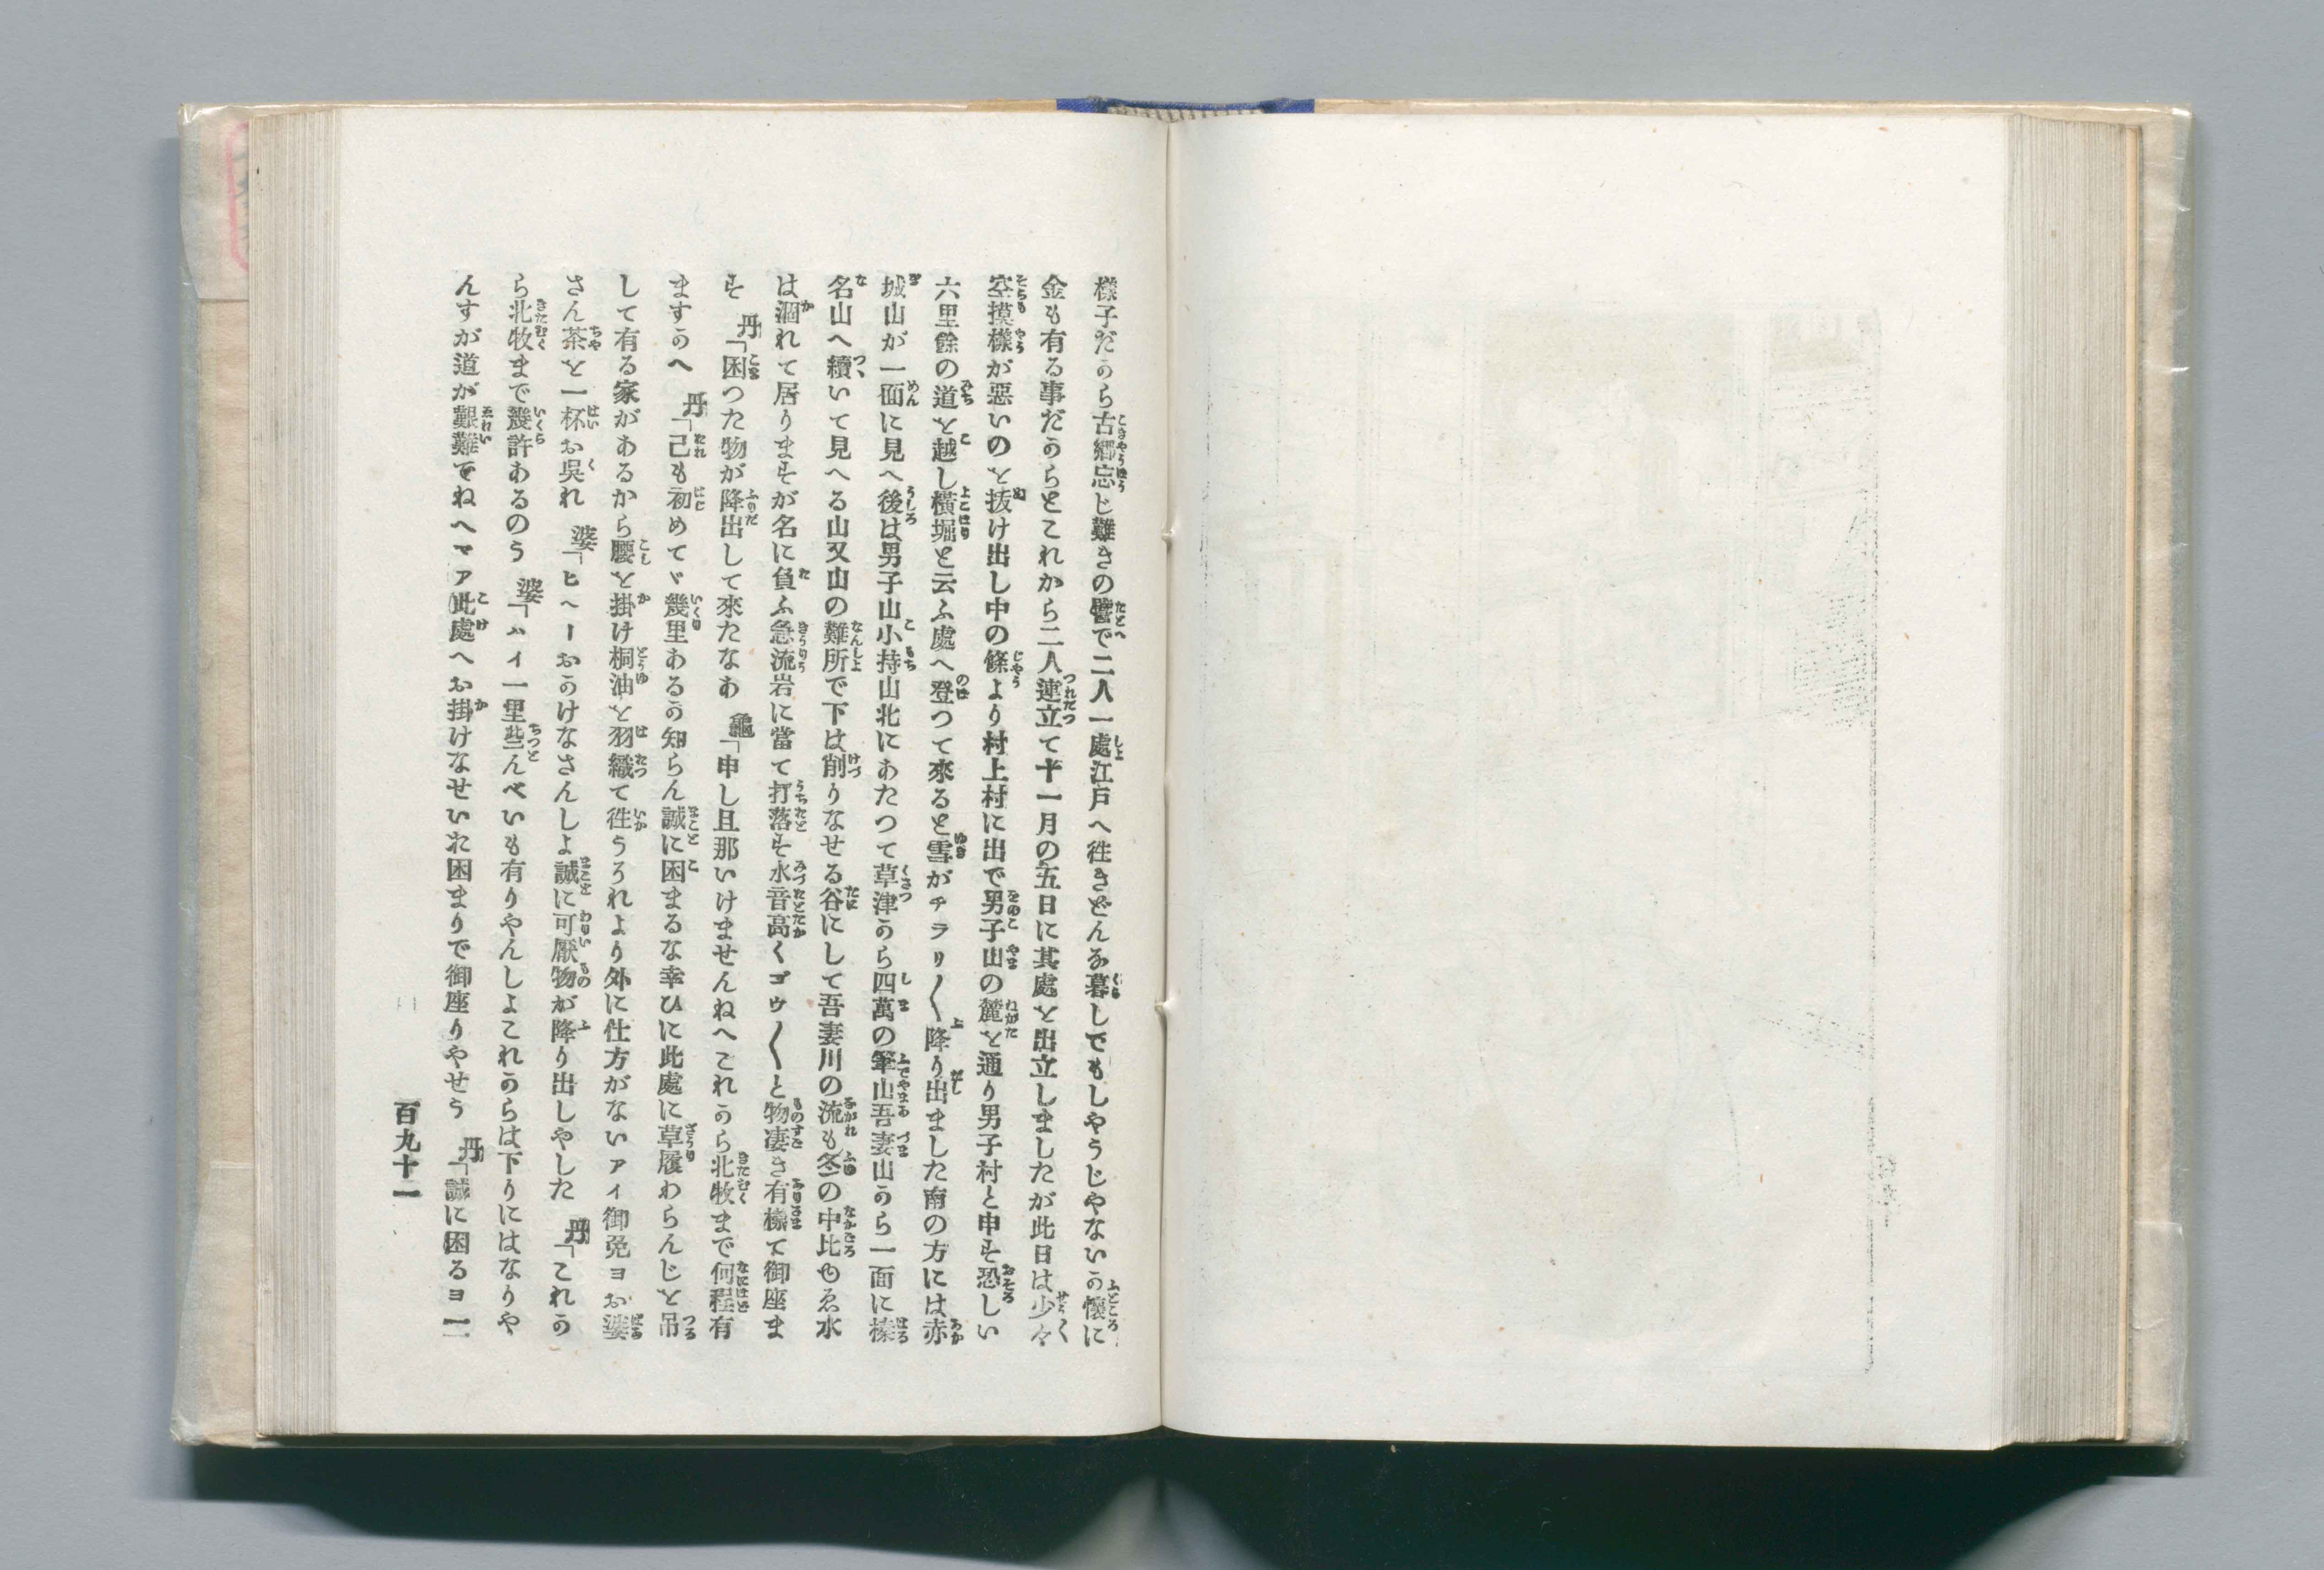 樣子だから古郷忘じ難きの譬で二人一處江戸へ徃きどんな暮しでもしやうじやないか懷に
金も有る事だからとこれから二人連立て十一月の五日に其處を出立しましたが此日は少々
空摸樣が惡いのを抜け出し中の條より村上村に出で男子山の麓を通り男子村と申す恐しい
六里餘の道を越し横堀と云ふ處へ登つて來ると雪がチラリ〱降り出ました南の方には赤
城山が一面に見へ後は男子山小持山北にあたつて草津から四萬の筆山吾妻山から一面に榛
名山へ續いて見へる山又山の難所で下は削りなせる谷にして吾妻川の流も冬の中比ゆゑ水
は涸れて居りますが名に負ふ急流岩に當て打落す水音高くゴウ〱と物凄き有樣で御座ま
す 丹「困つた物が降出して來たなあ 龜「申し旦那いけませんねへこれから北牧まで何程有
ますかへ 丹「己も初めてゞ幾里あるか知らん誠に困まるな幸ひに此處に草履わらんじを吊
して有る家があるから腰を掛け桐油を羽織て徃うそれより外に仕方がないァィ御免ヨお婆
さん茶を一杯お呉れ 婆「ヒヘーおかけなさんしよ誠に可厭物が降り出しやした 丹「これか
ら北牧まで幾許あるのう 婆「ハイ一里些んべいも有りやんしよこれからは下りにはなりや
んすが道が艱難でねへマア此處へお掛けなせいお困まりで御座りやせう 丹「誠に困るヨ二
百九十一